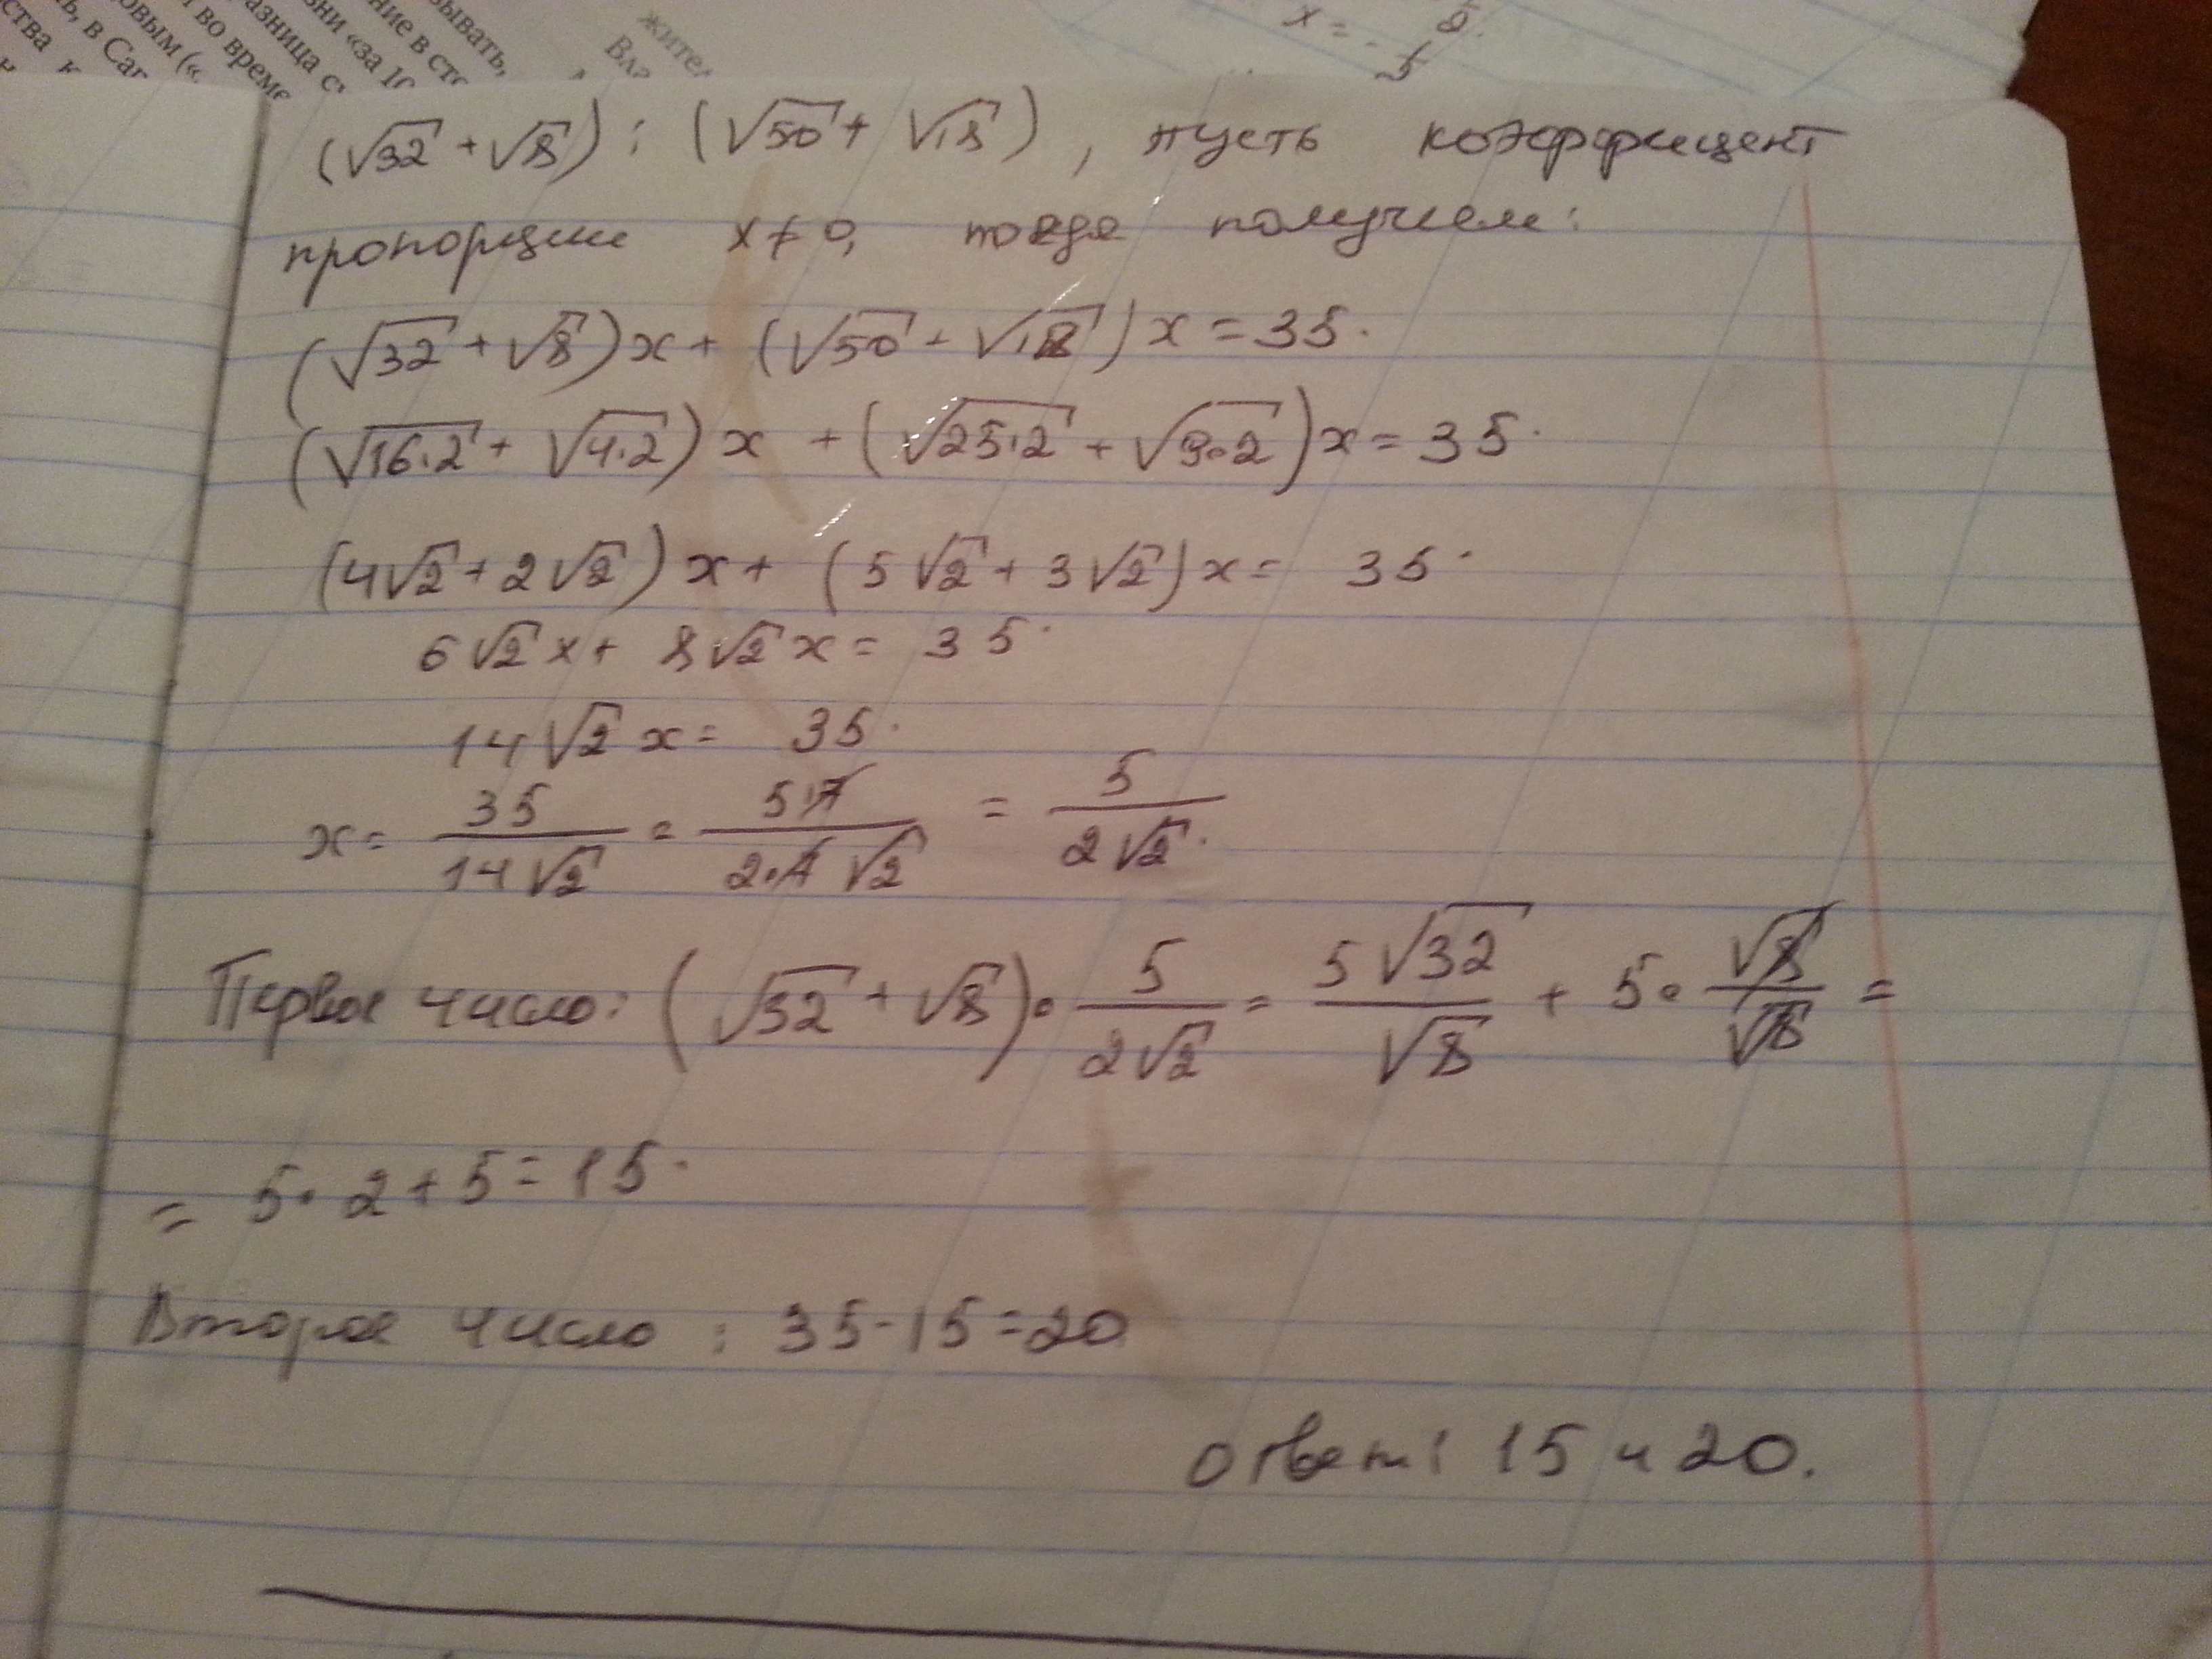 ства к
ь, в Саг
овым («
и во време
азница с
зни «за 10
ние в сто
зывать,
жител
Вла
x = -
(√32 + √8) : (√50 + √18), пусть коэффицент
пропорции x ≠ 0, тогда получем:
(√32 + √8)x + (√50 + √18)x = 35.
(√16·2 + √4·2)x + (√25·2 + √9·2)x = 35.
(4√2 + 2√2)x + (5√2 + 3√2)x = 35.
6√2x + 8√2x = 35.
14√2x = 35.
x = 35/14√2 = 5·7/2·7√2 = 5/2√2.
Первое число: (√32 + √8) · 5/2√2 = 5√32/√8 + 5·√8/√8 =
= 5·2 + 5 = 15.
Второе число: 35 - 15 = 20
Ответ: 15 и 20.